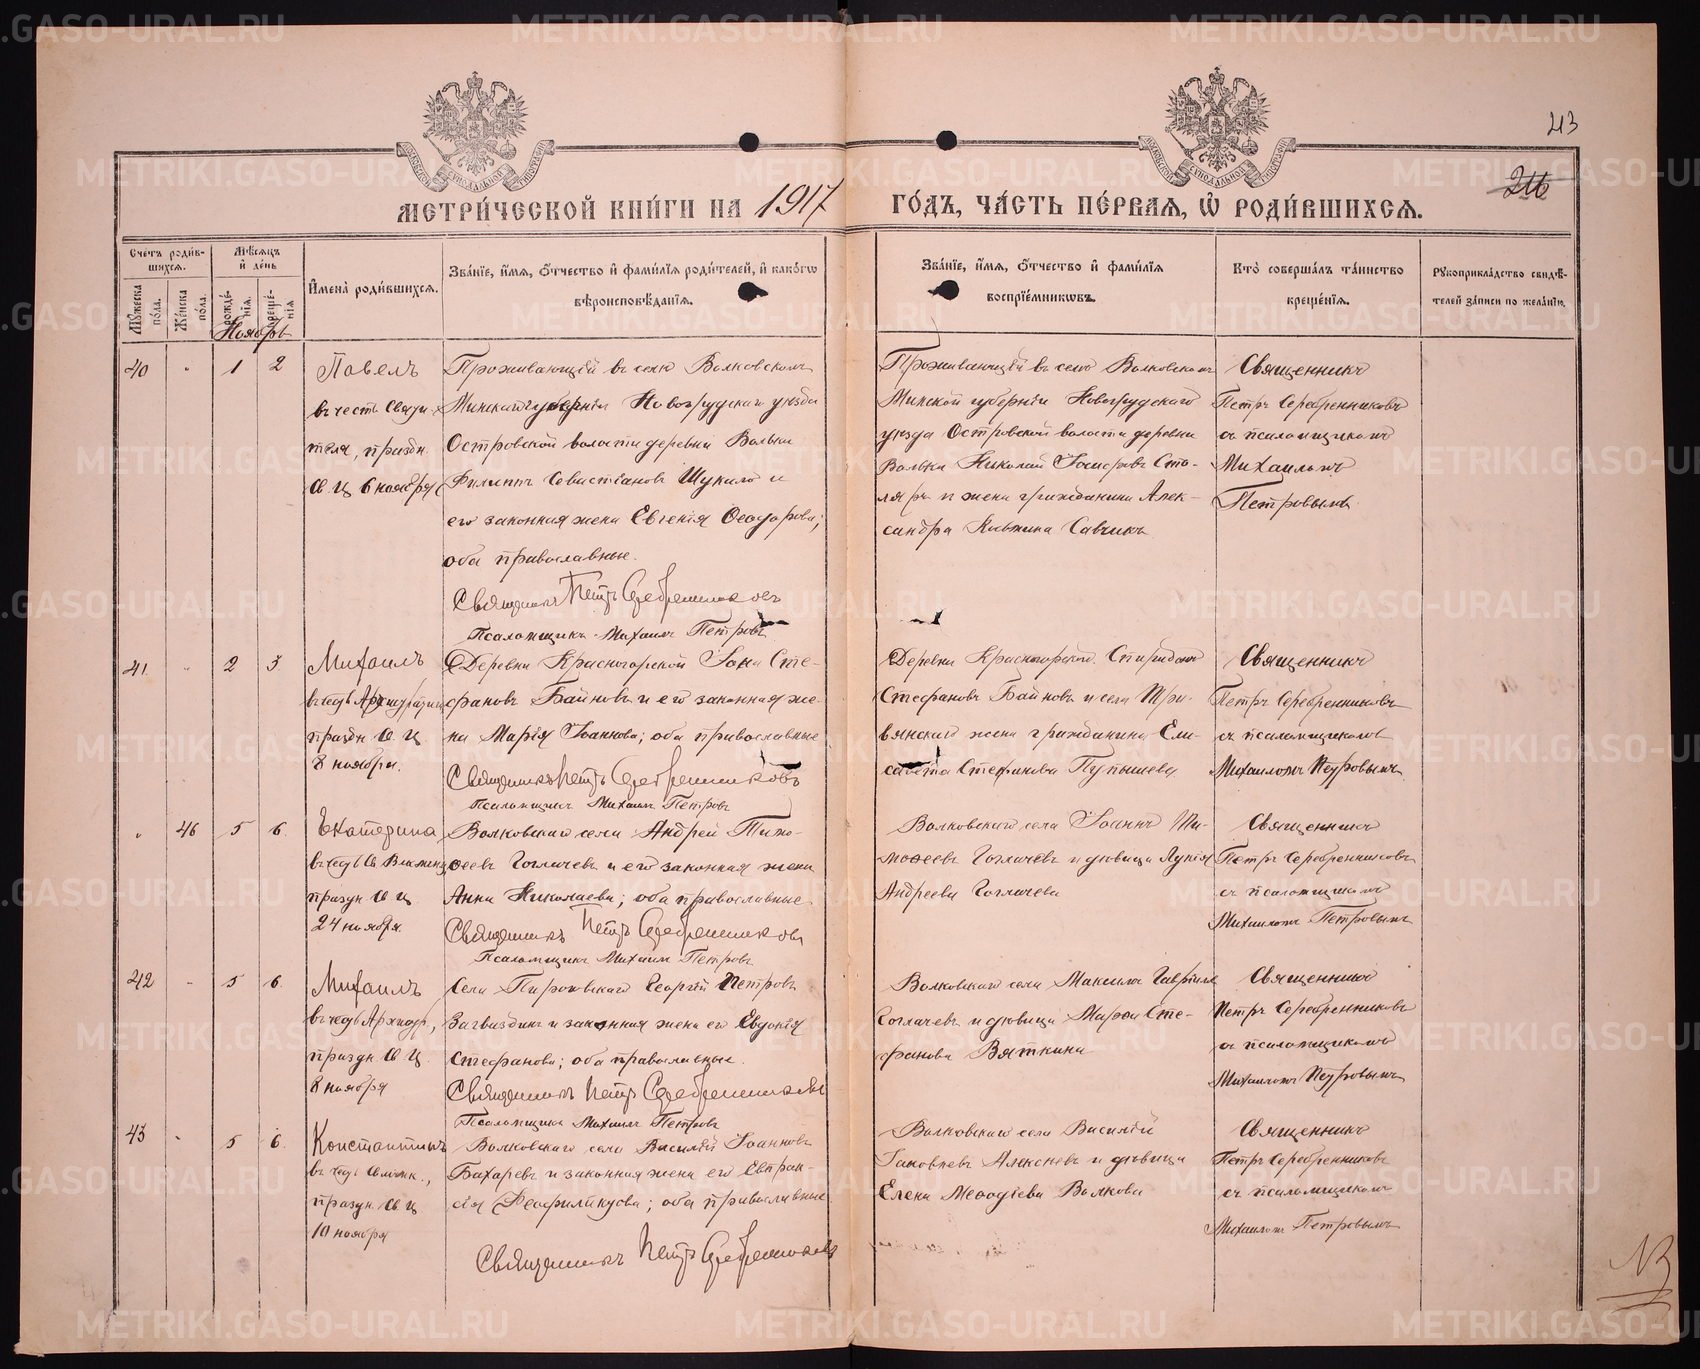 213
216
МЕТРИ́ЧЕСКОЙ КНИ́ГИ НА 1917 ГО́ДЪ, ЧА́СТЬ ПЕ́РВАЯ, Ѽ РОДИ́ВШИХСЯ.
Сче́тъ роди́в-
шихся.
Мѣ́сяцъ
и҆ де́нь
Мꙋ́жеска по́ла.
Же́нска по́ла.
рожде́-
нїя.
креще́-
нїя
И҆мена̀ роди́вшихся.
Зва́нїе, и҆́мя, ѻ҆́тчество и҆ фами́лїя роди́телей, и҆ како́гѡ
вѣроисповѣ́данїя.
Зва́нїе, и҆́мя, ѻ҆́тчество и҆ фами́лїя
воспрїе́мникѡвъ.
Кто̀ соверша́лъ та́инство
креще́нїя.
Рꙋкоприкла́дство свидѣ́-
телей за́писи по жела́нїю.
Ноябрь
40 " 1 2
Павелъ
въ честь Святи-
теля, праздн.
св. Ц 6 ноября
Проживающій въ селѣ Волковскомъ
Минской губерніи Новогрудскаго уѣзда
Островской волости деревни Вольки
Филиппъ Севастіановъ Шукило и
его законная жена Евгенія Ѳеодорова;
оба православные.
Священникъ Петръ Серебренниковъ
Псаломщикъ Михаилъ Петровъ
Проживающій въ селѣ Волковскомъ
Минской губерніи Новогрудскаго
уѣзда Островской волости деревни
Вольки Николай Іосифовъ Сто-
ляръ и жена гражданина Алек-
сандра Савчикъ
Священникъ
Петръ Серебренниковъ
съ псаломщикомъ
Михаиломъ
Петровымъ
41 " 2 3
Михаилъ
въ честь Архистратига
праздн. св. Ц.
8 ноября.
Деревни Красногорской Іона Сте-
фановъ Байновъ и его законная же-
на Марія Іоаннова; оба православные
Священникъ Петръ Серебренниковъ
Псаломщикъ Михаилъ Петровъ
Деревни Красногорской Спиридонъ
Стефановъ Байновъ и села Тра-
вянскаго жена гражданина Ели-
савета Стефанова Пупышева
Священникъ
Петръ Серебренниковъ
съ псаломщикомъ
Михаиломъ Петровымъ
" 46 5 6
Екатерина
въ честь Св. Великомуч
праздн св. ц
24 ноября.
Волковскаго села Андрей Тимо-
ѳеевъ Гоглачевъ и его законная жена
Анна Николаева; оба православные.
Священникъ Петръ Серебренниковъ
Псаломщикъ Михаилъ Петровъ
Волковскаго села Іоаннъ Ти-
моѳеевъ Гоглачевъ и дѣвица Лукія
Андреева Гоглачева
Священникъ
Петръ Серебренниковъ
съ псаломщикомъ
Михаиломъ Петровымъ
42 - 5 6.
Михаилъ
въ честь Архистр.,
праздн. св. Ц.
8 ноября
Села Пироговскаго Георгій Петровъ
Загвоздинъ и законная жена его Евдокія
Стефанова; оба православные.
Священникъ Петръ Серебренниковъ
Псаломщикъ Михаилъ Петровъ
Волковскаго села Максимъ Гавріиловъ
Гоглачевъ и дѣвица Марѳа Сте-
фанова Вяткина
Священникъ
Петръ Серебренниковъ
съ псаломщикомъ
Михаиломъ Петровымъ
43 - 5 6.
Константинъ
въ честь
праздн. св. ц
10 ноября
Волковскаго села Василій Іоанновъ
Бахаревъ и законная жена его Евпрак-
сія Ѳеофилактова; оба православные
Священникъ Петръ Серебренниковъ
Волковскаго села Василій
Іаковлевъ Алексѣевъ и дѣвица
Елена Меѳодіева Волкова
Священникъ
Петръ Серебренниковъ
съ псаломщикомъ
Михаиломъ Петровымъ
METRIKI.GASO-URAL.RU